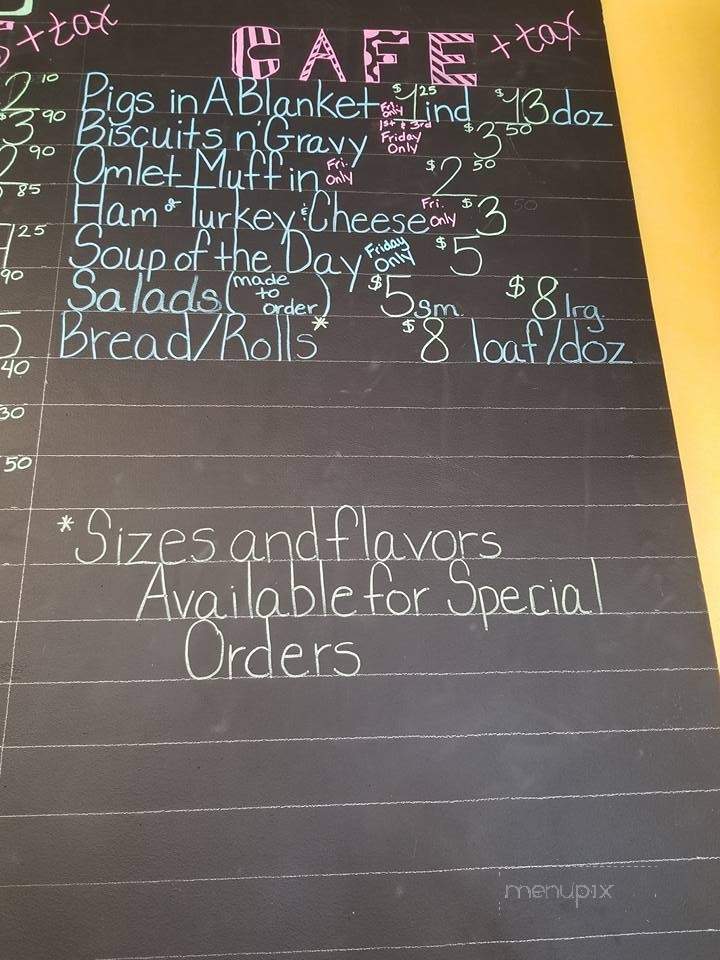 +tax
CAFE +tax
2 10 Pigs in A Blanket Fri. only $1 25 ind $13 doz
$3 90 Biscuits n' Gravy 1st & 3rd Friday Only $3 50
90 Omlet Muffin Fri. only $2 50
85 Ham & Turkey & Cheese Fri. only $3 50
25 Soup of the Day Friday Only $5
90 Salads (made to order) $5 sm. $8 lrg.
Bread/Rolls* $8 loaf/doz
40
30
50
*Sizes and flavors
Available for Special
Orders
menupix